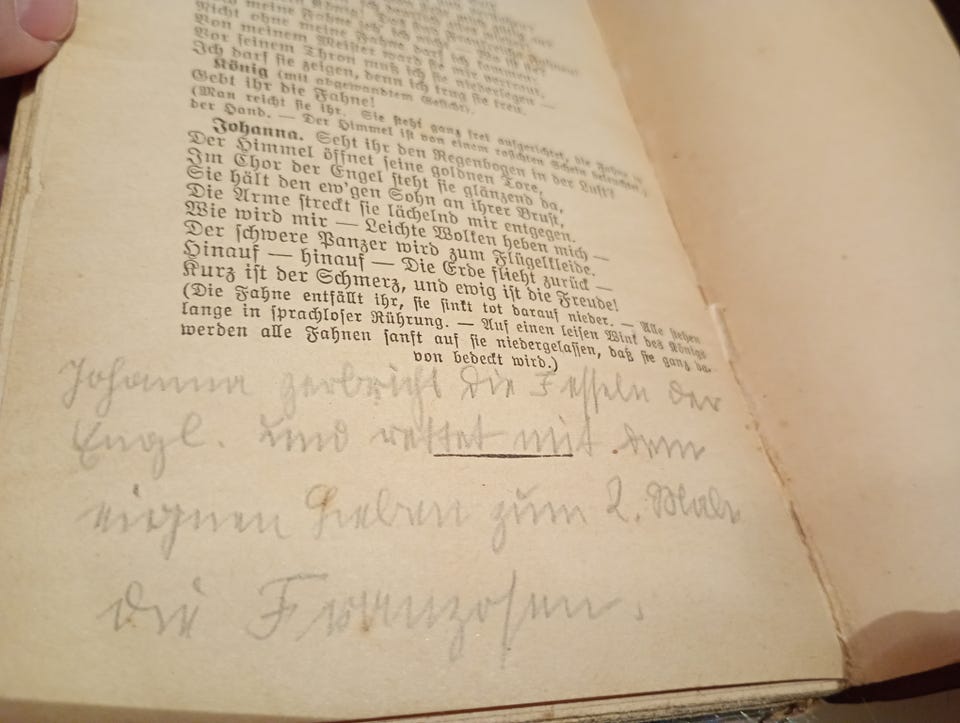 meine Fahne
Nicht ohne meine Fahne darf ich kommen;
Von meinem Meister ward sie mir vertraut,
Vor seinem Thron muß ich sie niederlegen —
Ich darf sie zeigen, denn ich trug sie treu.
König (mit abgewandtem Gesicht).
Gebt ihr die Fahne!
(Man reicht sie ihr. Sie steht ganz frei aufgerichtet, die Fahne in
der Hand. — Der Himmel ist von einem rosichten Schein beleuchtet.)
Johanna. Seht ihr den Regenbogen in der Luft?
Der Himmel öffnet seine goldnen Tore,
Im Chor der Engel steht sie glänzend da,
Sie hält den ew'gen Sohn an ihrer Brust,
Die Arme streckt sie lächelnd mir entgegen.
Wie wird mir — Leichte Wolken heben mich —
Der schwere Panzer wird zum Flügelkleide.
Hinauf — hinauf — Die Erde flieht zurück —
Kurz ist der Schmerz, und ewig ist die Freude!
(Die Fahne entfällt ihr, sie sinkt tot darauf nieder. — Alle stehen
lange in sprachloser Rührung. — Auf einen leisen Wink des Königs
werden alle Fahnen sanft auf sie niedergelassen, daß sie ganz da-
von bedeckt wird.)
Johanna zerbricht die Fesseln der
Engl. und rettet mit dem
eignen Leben zum 2. Male
die Franzosen.